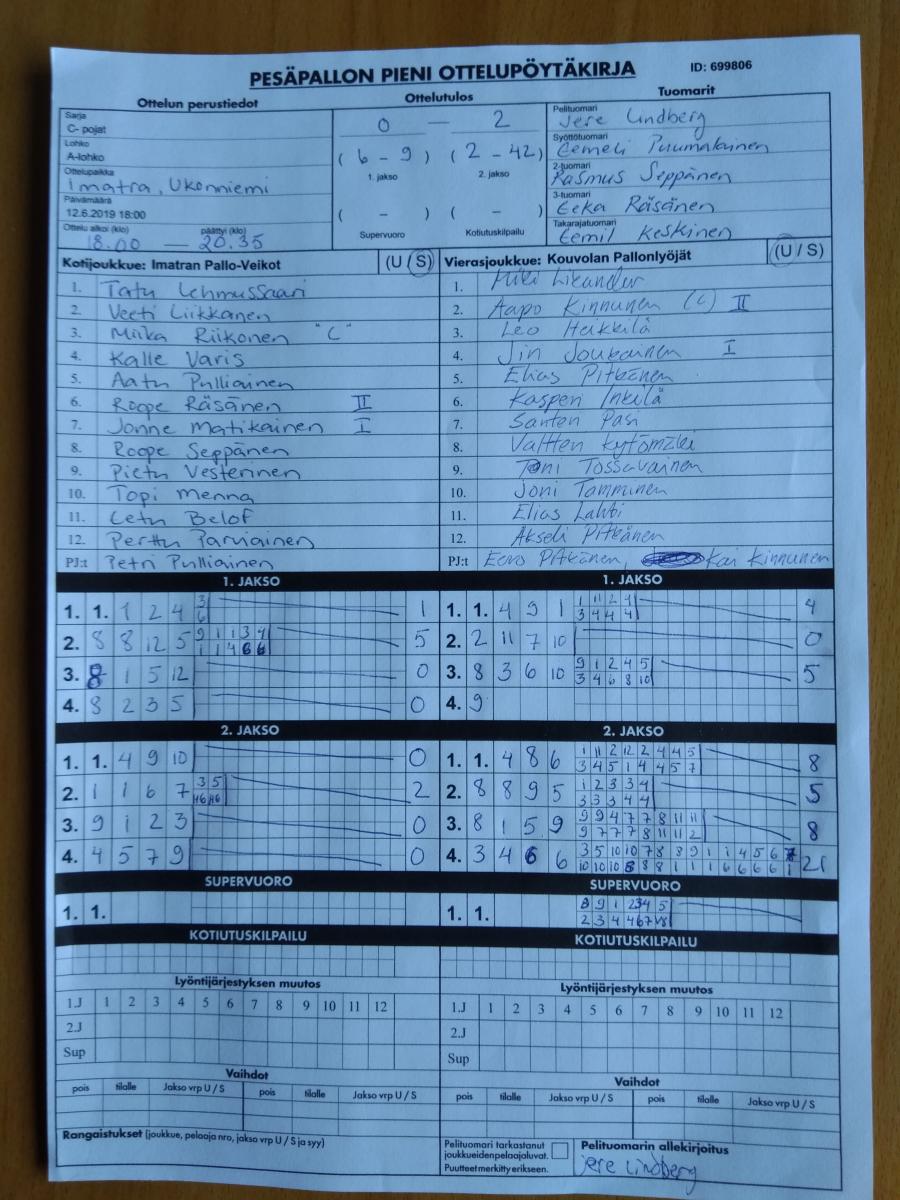 PESÄPALLON PIENI OTTELUPÖYTÄKIRJA ID: 699806
Ottelun perustiedot Ottelutulos Tuomarit
Sarja
C- pojat
Lohko
A-lohko
Ottelupaikka
Imatra, Ukonniemi
Päivämäärä
12.6.2019 18:00
Ottelu alkoi (klo) päättyi (klo)
18.00 — 20.35
0 — 2
(6 - 9) (2 - 42)
1. jakso 2. jakso
( - ) ( - )
Supervuoro Kotiutuskilpailu
Pelituomari
Jere Lindberg
Syöttötuomari
Eemeli Puumalainen
2-tuomari
Rasmus Seppänen
3-tuomari
Eeka Räsänen
Takarajatuomari
Eemil Keskinen
Kotijoukkue: Imatran Pallo-Veikot (U / S)
1. Tatu Lehmussaari
2. Veeti Liikkanen
3. Miika Riikonen "C"
4. Kalle Varis
5. Aatu Pulliainen
6. Roope Räsänen II
7. Jonne Matikainen I
8. Roope Seppänen
9. Pietu Vesterinen
10. Topi Menna
11. Eetu Belof
12. Perttu Parviainen
PJ:t Petri Pulliainen
Vierasjoukkue: Kouvolan Pallonlyöjät (U / S)
1. Miki Likander
2. Aapo Kinnunen (C) II
3. Leo Heikkilä
4. Jin Joukainen I
5. Elias Pitkänen
6. Kasperi Inkilä
7. Santeri Pasi
8. Valtteri Kytömäki
9. Toni Tossavainen
10. Joni Tamminen
11. Elias Lahti
12. Akseli Pitkänen
PJ:t Eero Pitkänen, Kai Kinnunen
1. JAKSO
1. 1. 1 2 4 3 1
6
2. 8 8 12 5 9 1 1 3 4 5
1 1 4 6 6
3. 8 1 5 12 0
4. 8 2 3 5 0
2. JAKSO
1. 1. 4 9 10 0
2. 1 1 6 7 3 5 2
3. 9 1 2 3 0
4. 4 5 7 9 0
SUPERVUORO
1. 1.
KOTIUTUSKILPAILU
1. JAKSO
1. 1. 4 9 1 1 11 2 4 4
3 4 4 4
2. 2 11 7 10 0
3. 8 3 6 10 9 1 2 4 5 5
3 4 6 8 10
4. 9
2. JAKSO
1. 1. 4 8 6 1 11 2 12 2 4 4 5 8
3 4 5 1 4 4 5 7
2. 8 8 9 5 1 2 3 3 4 5
3 3 3 4 4
3. 8 1 5 9 9 9 4 7 7 8 11 11 8
9 7 7 7 8 11 11 2
4. 3 4 6 6 3 5 10 10 7 8 8 9 1 1 4 5 6 21
10 10 10 8 8 8 1 1 1 6 6 6 6 1
SUPERVUORO
1. 1. 3 9 1 2 3 4 5
2 3 4 4 6 7
KOTIUTUSKILPAILU
Lyöntijärjestyksen muutos
1.J 1 2 3 4 5 6 7 8 9 10 11 12
2.J
Sup
Vaihdot
pois tilalle Jakso vrp U / S pois tilalle Jakso vrp U / S
Lyöntijärjestyksen muutos
1.J 1 2 3 4 5 6 7 8 9 10 11 12
2.J
Sup
Vaihdot
pois tilalle Jakso vrp U / S pois tilalle Jakso vrp U / S
Rangaistukset (joukkue, pelaaja nro, jakso vrp U / S ja syy)
Pelituomari tarkastanut
joukkueidenpelaajaluvat.
Puutteet merkitty erikseen.
Pelituomarin allekirjoitus
Jere Lindberg